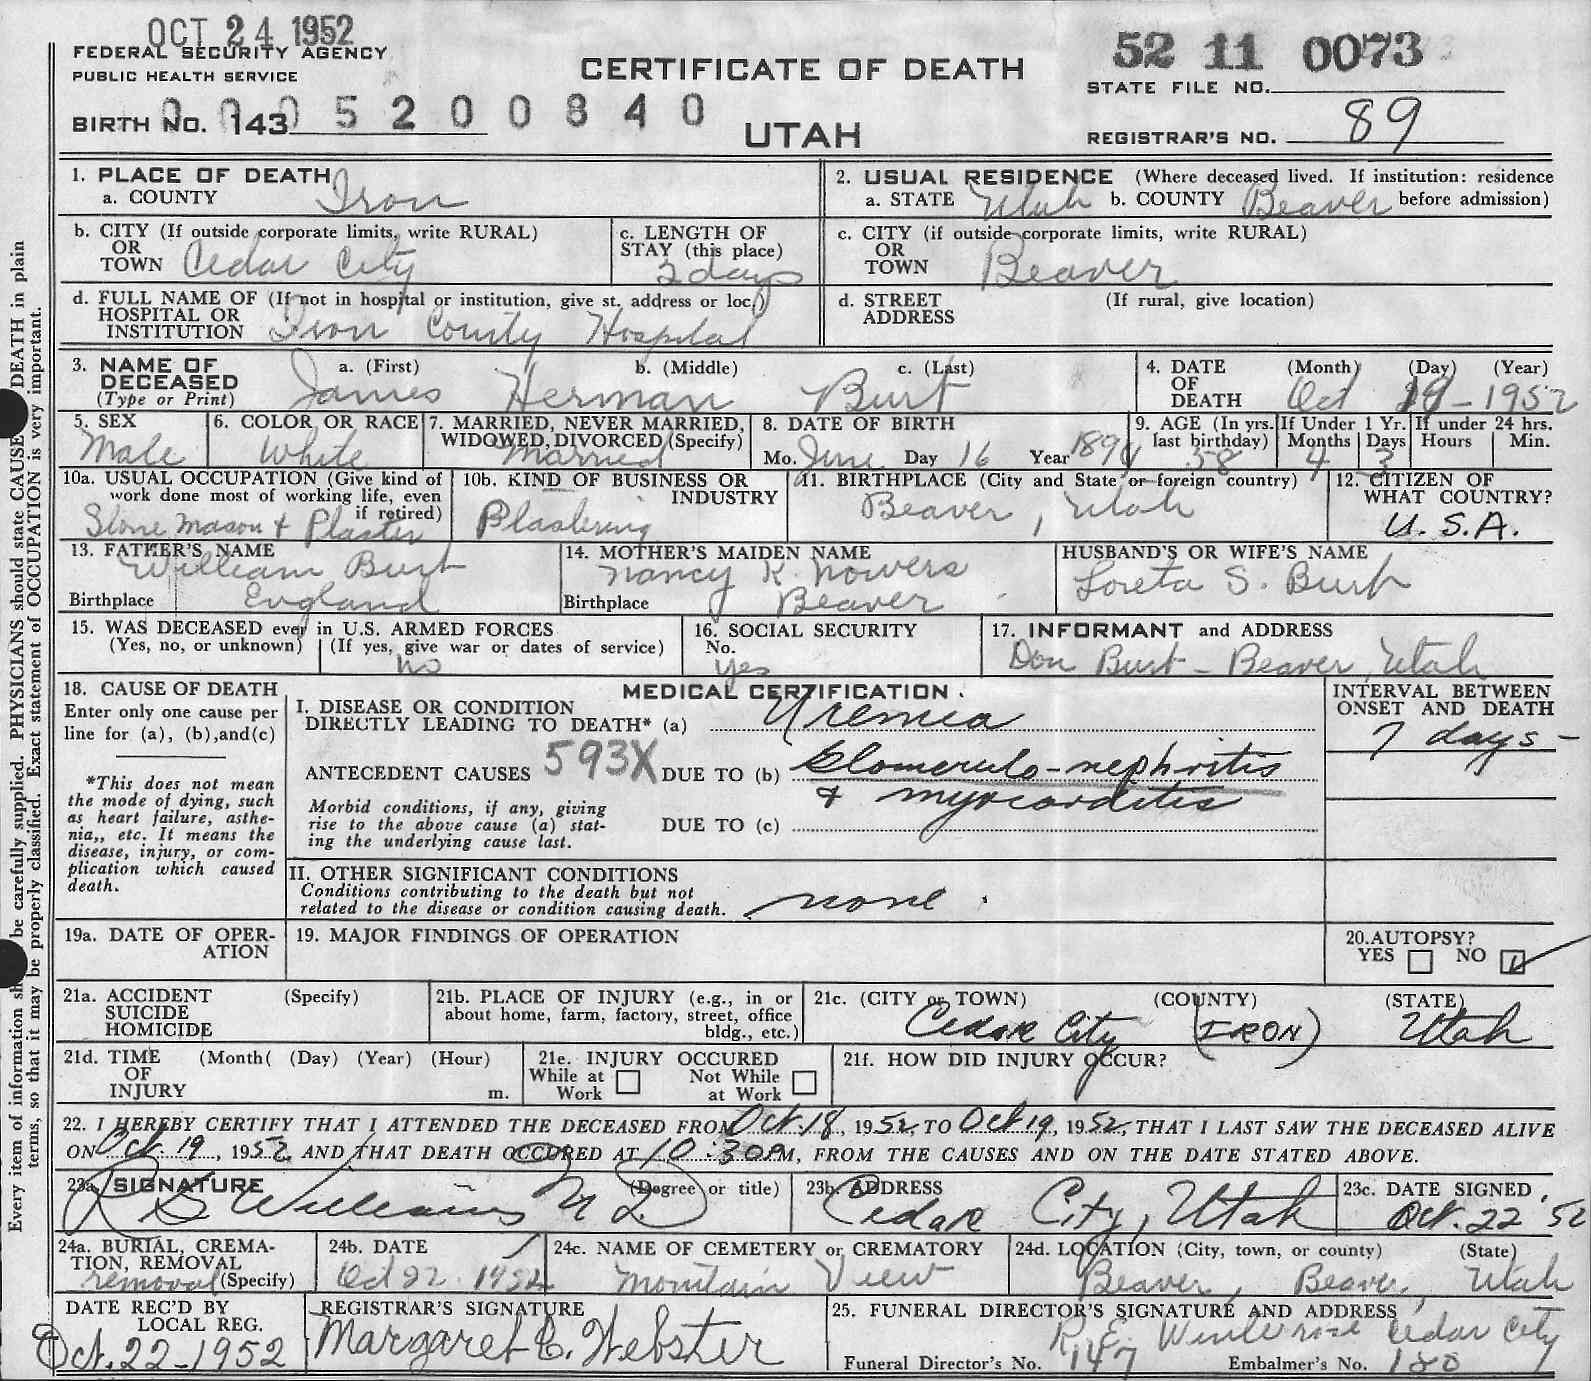 OCT 24 1952
FEDERAL SECURITY AGENCY
PUBLIC HEALTH SERVICE
BIRTH NO. 143
0005200840
CERTIFICATE OF DEATH
UTAH
52 11 0073
STATE FILE NO.
REGISTRAR'S NO. 89
1. PLACE OF DEATH
a. COUNTY Iron
2. USUAL RESIDENCE (Where deceased lived. If institution: residence before admission)
a. STATE Utah b. COUNTY Beaver
b. CITY (If outside corporate limits, write RURAL)
OR TOWN Cedar City
c. LENGTH OF STAY (this place) 2 days
c. CITY (if outside corporate limits, write RURAL)
OR TOWN Beaver
d. FULL NAME OF (If not in hospital or institution, give st. address or loc.)
HOSPITAL OR INSTITUTION Iron County Hospital
d. STREET ADDRESS (If rural, give location)
3. NAME OF DECEASED (Type or Print)
a. (First) James b. (Middle) Herman c. (Last) Burt
4. DATE OF DEATH (Month) (Day) (Year) Oct 19-1952
5. SEX Male
6. COLOR OR RACE White
7. MARRIED, NEVER MARRIED, WIDOWED, DIVORCED (Specify) Married
8. DATE OF BIRTH Mo. June Day 16 Year 1894
9. AGE (In yrs. last birthday) 58
If Under 1 Yr. Months 4 Days 3
If under 24 hrs. Hours Min.
10a. USUAL OCCUPATION (Give kind of work done most of working life, even if retired)
Stone Mason & Plaster
10b. KIND OF BUSINESS OR INDUSTRY Plastering
11. BIRTHPLACE (City and State or foreign country) Beaver, Utah
12. CITIZEN OF WHAT COUNTRY? U.S.A.
13. FATHER'S NAME William Burt
Birthplace England
14. MOTHER'S MAIDEN NAME Nancy K. Nowers
Birthplace Beaver
HUSBAND'S OR WIFE'S NAME Loreta S. Burt
15. WAS DECEASED ever in U.S. ARMED FORCES
(Yes, no, or unknown) (If yes, give war or dates of service) no
16. SOCIAL SECURITY No. yes
17. INFORMANT and ADDRESS Don Burt - Beaver, Utah
18. CAUSE OF DEATH
Enter only one cause per line for (a), (b), and (c)
*This does not mean the mode of dying, such as heart failure, asthenia,, etc. It means the disease, injury, or complication which caused death.
MEDICAL CERTIFICATION.
I. DISEASE OR CONDITION
DIRECTLY LEADING TO DEATH* (a) Uremia
INTERVAL BETWEEN ONSET AND DEATH
7 days-
ANTECEDENT CAUSES 593X DUE TO (b) Glomerulo-nephritis
& myocarditis
Morbid conditions, if any, giving rise to the above cause (a) stating the underlying cause last.
DUE TO (c)
II. OTHER SIGNIFICANT CONDITIONS
Conditions contributing to the death but not related to the disease or condition causing death. none.
19a. DATE OF OPERATION
19. MAJOR FINDINGS OF OPERATION
20. AUTOPSY?
YES NO
21a. ACCIDENT SUICIDE HOMICIDE (Specify)
21b. PLACE OF INJURY (e.g., in or about home, farm, factory, street, office bldg., etc.)
21c. (CITY or TOWN) (COUNTY) (STATE)
Cedar City (IRON) Utah
21d. TIME OF INJURY (Month( (Day) (Year) (Hour) m.
21e. INJURY OCCURED
While at Work Not While at Work
21f. HOW DID INJURY OCCUR?
22. I HEREBY CERTIFY THAT I ATTENDED THE DECEASED FROM Oct. 18, 1952, TO Oct 19, 1952, THAT I LAST SAW THE DECEASED ALIVE
ON Oct. 19, 1952 AND THAT DEATH OCCURED AT 10:30 P M, FROM THE CAUSES AND ON THE DATE STATED ABOVE.
23a. SIGNATURE (Degree or title) Williams M D
23b. ADDRESS Cedar City, Utah
23c. DATE SIGNED. Oct. 22 '52
24a. BURIAL, CREMATION, REMOVAL (Specify) removal
24b. DATE Oct 22. 1952
24c. NAME OF CEMETERY or CREMATORY Mountain View
24d. LOCATION (City, town, or county) (State)
Beaver, Beaver, Utah
DATE REC'D BY LOCAL REG.
Oct. 22-1952
REGISTRAR'S SIGNATURE
Margaret C. Webster
25. FUNERAL DIRECTOR'S SIGNATURE AND ADDRESS
R. E. Winterose Cedar City
Funeral Director's No. 147 Embalmer's No. 180
Every item of information be carefully supplied. PHYSICIANS should state CAUSE DEATH in plain
terms, so that it may be properly classified. Exact statement of OCCUPATION is very important.